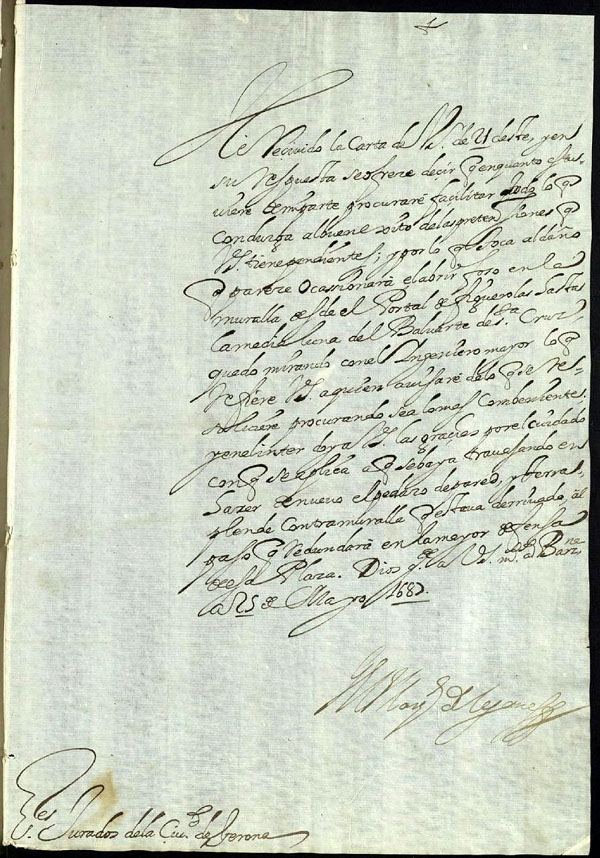 He Recivido la Carta de V.S. de 21 deste, y en
su Respuesta se ofreze decir q̃ en quanto estu-
viere de mi parte procuraré facilitar todo lo q̃
Conduzga al buen exito de las pretensiones q̃
V.S. tiene pendientes; y por lo q̃ toca al daño
q̃ pareze Ocasionará el abrir foso en la
muralla desde el Portal de figuerolas hasta
la media luna del Baluarte de S.ta Cruz,
quedo mirando con el Ingeniero mayor lo q̃
Refiere V.S. a quien avisaré de lo q̃ se Res-
olviere procurando sea lo mas Combeniente,
y en el inter doy a V.S. las gracias por el cuidado
con q̃ se aplica a q̃ se baya travajando en
hazer de nuevo el pedazo de pared, y terra-
plende Contramuralla q̃ estava derrivado, al
paso q̃ Redundará en la mayor defensa
de esa Plaza. Dios g.de a V.S. m.s a.s Barz.na
a 25 de Mayo 1687.
El Marq.s de Leganes
SS.res Jurados de la Ciu.d de Gerona